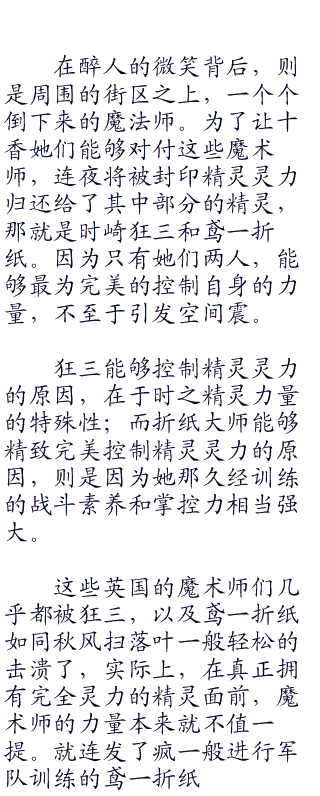 在醉人的微笑背后，则
是周围的街区之上，一个个
倒下来的魔法师。为了让十
香她们能够对付这些魔术
师，连夜将被封印精灵灵力
归还给了其中部分的精灵，
那就是时崎狂三和鸢一折
纸。因为只有她们两人，能
够最为完美的控制自身的力
量，不至于引发空间震。
狂三能够控制精灵灵力
的原因，在于时之精灵力量
的特殊性；而折纸大师能够
精致完美控制精灵灵力的原
因，则是因为她那久经训练
的战斗素养和掌控力相当强
大。
这些英国的魔术师们几
乎都被狂三，以及鸢一折纸
如同秋风扫落叶一般轻松的
击溃了，实际上，在真正拥
有完全灵力的精灵面前，魔
术师的力量本来就不值一
提。就连发了疯一般进行军
队训练的鸢一折纸